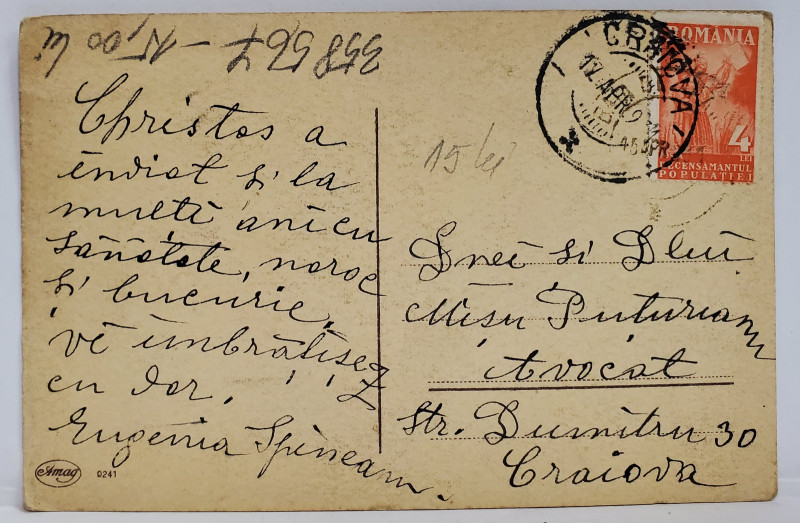 358 567 - 15,00 lei
Christos a
înviat și la
mulți ani cu
sănătate, noroc
și bucurie,
vă îmbrățișez
cu dor,
Eugenia Spineanu.
Amag
0241
15 lei
CRAIOVA
17 APR
ROMANIA
4
LEI
RECENSAMANTUL
POPULAȚIEI
Dnei si Dlui
Mișu Puturianu
Avocat
Str. Dumitru 30
Craiova